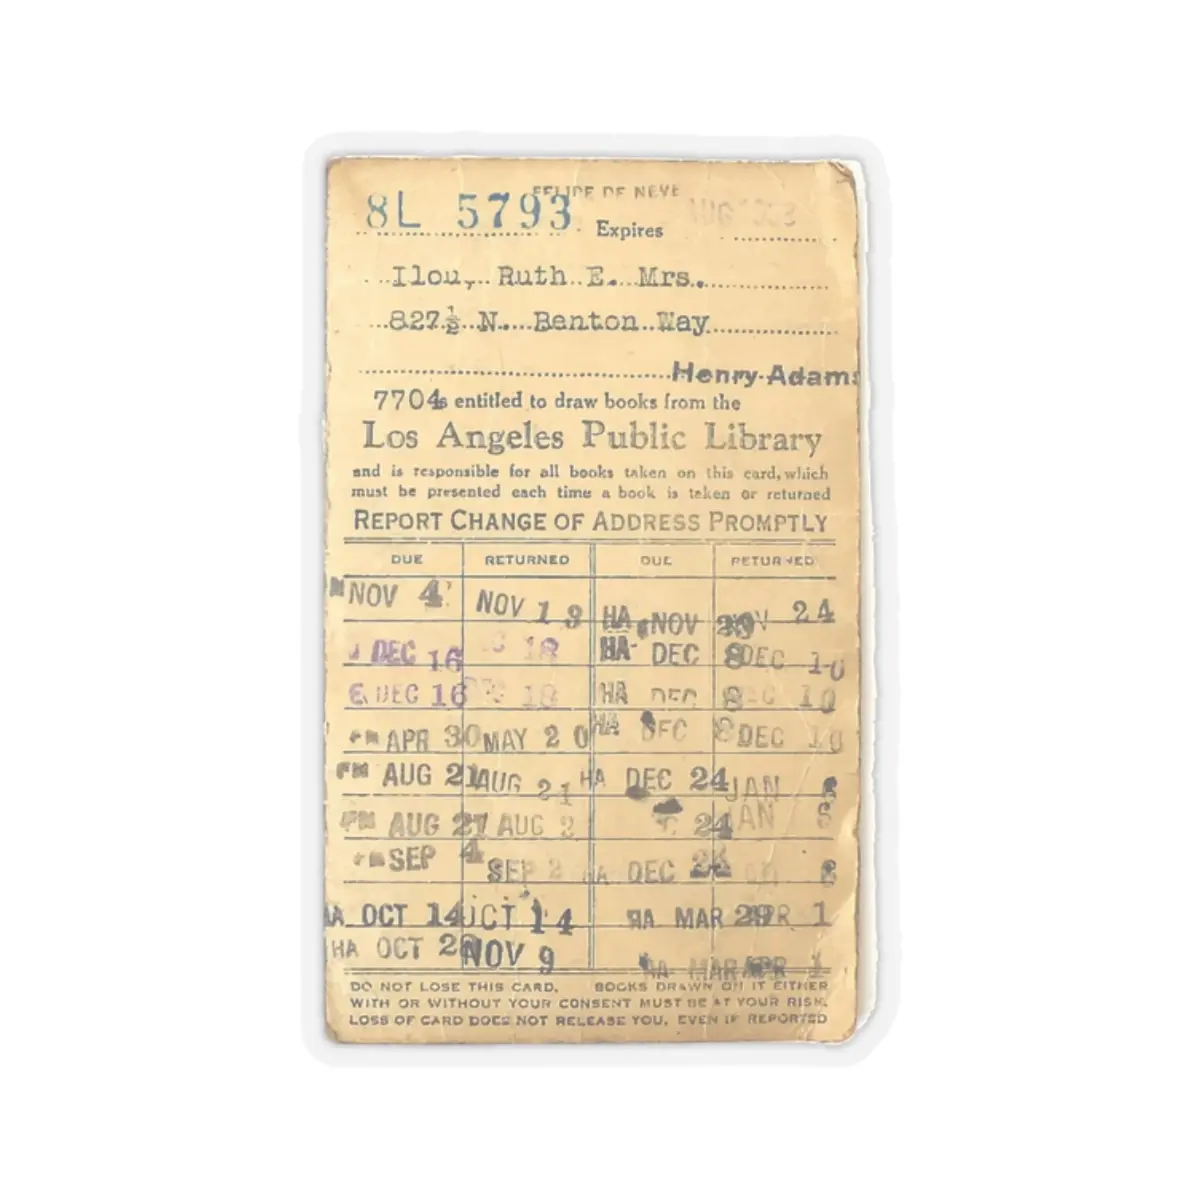 FELIPE DE NEVE
8L 5793 Expires AUG
Ilou, Ruth E. Mrs.
827½ N. Benton Way
Henry Adams
7704 is entitled to draw books from the
Los Angeles Public Library
and is responsible for all books taken on this card, which
must be presented each time a book is taken or returned
REPORT CHANGE OF ADDRESS PROMPTLY
DUE RETURNED DUE RETURNED
NOV 4 NOV 13 HA NOV NOV 24
DEC 16 18 HA DEC 8 DEC 10
DEC 16 DEC 18 HA DEC 8 DEC 10
PM APR 30 MAY 20 HA DEC 8 DEC 10
PM AUG 21 AUG 21 HA DEC 24 JAN 6
PM AUG 21 AUG 2 24 JAN 6
PM SEP 4 SEP 2 HA DEC 24 6
HA OCT 14 OCT 14 HA MAR 29 APR 1
HA OCT 28 NOV 9 HA MAR APR 1
DO NOT LOSE THIS CARD. BOOKS DRAWN ON IT EITHER
WITH OR WITHOUT YOUR CONSENT MUST BE AT YOUR RISK.
LOSS OF CARD DOES NOT RELEASE YOU, EVEN IF REPORTED